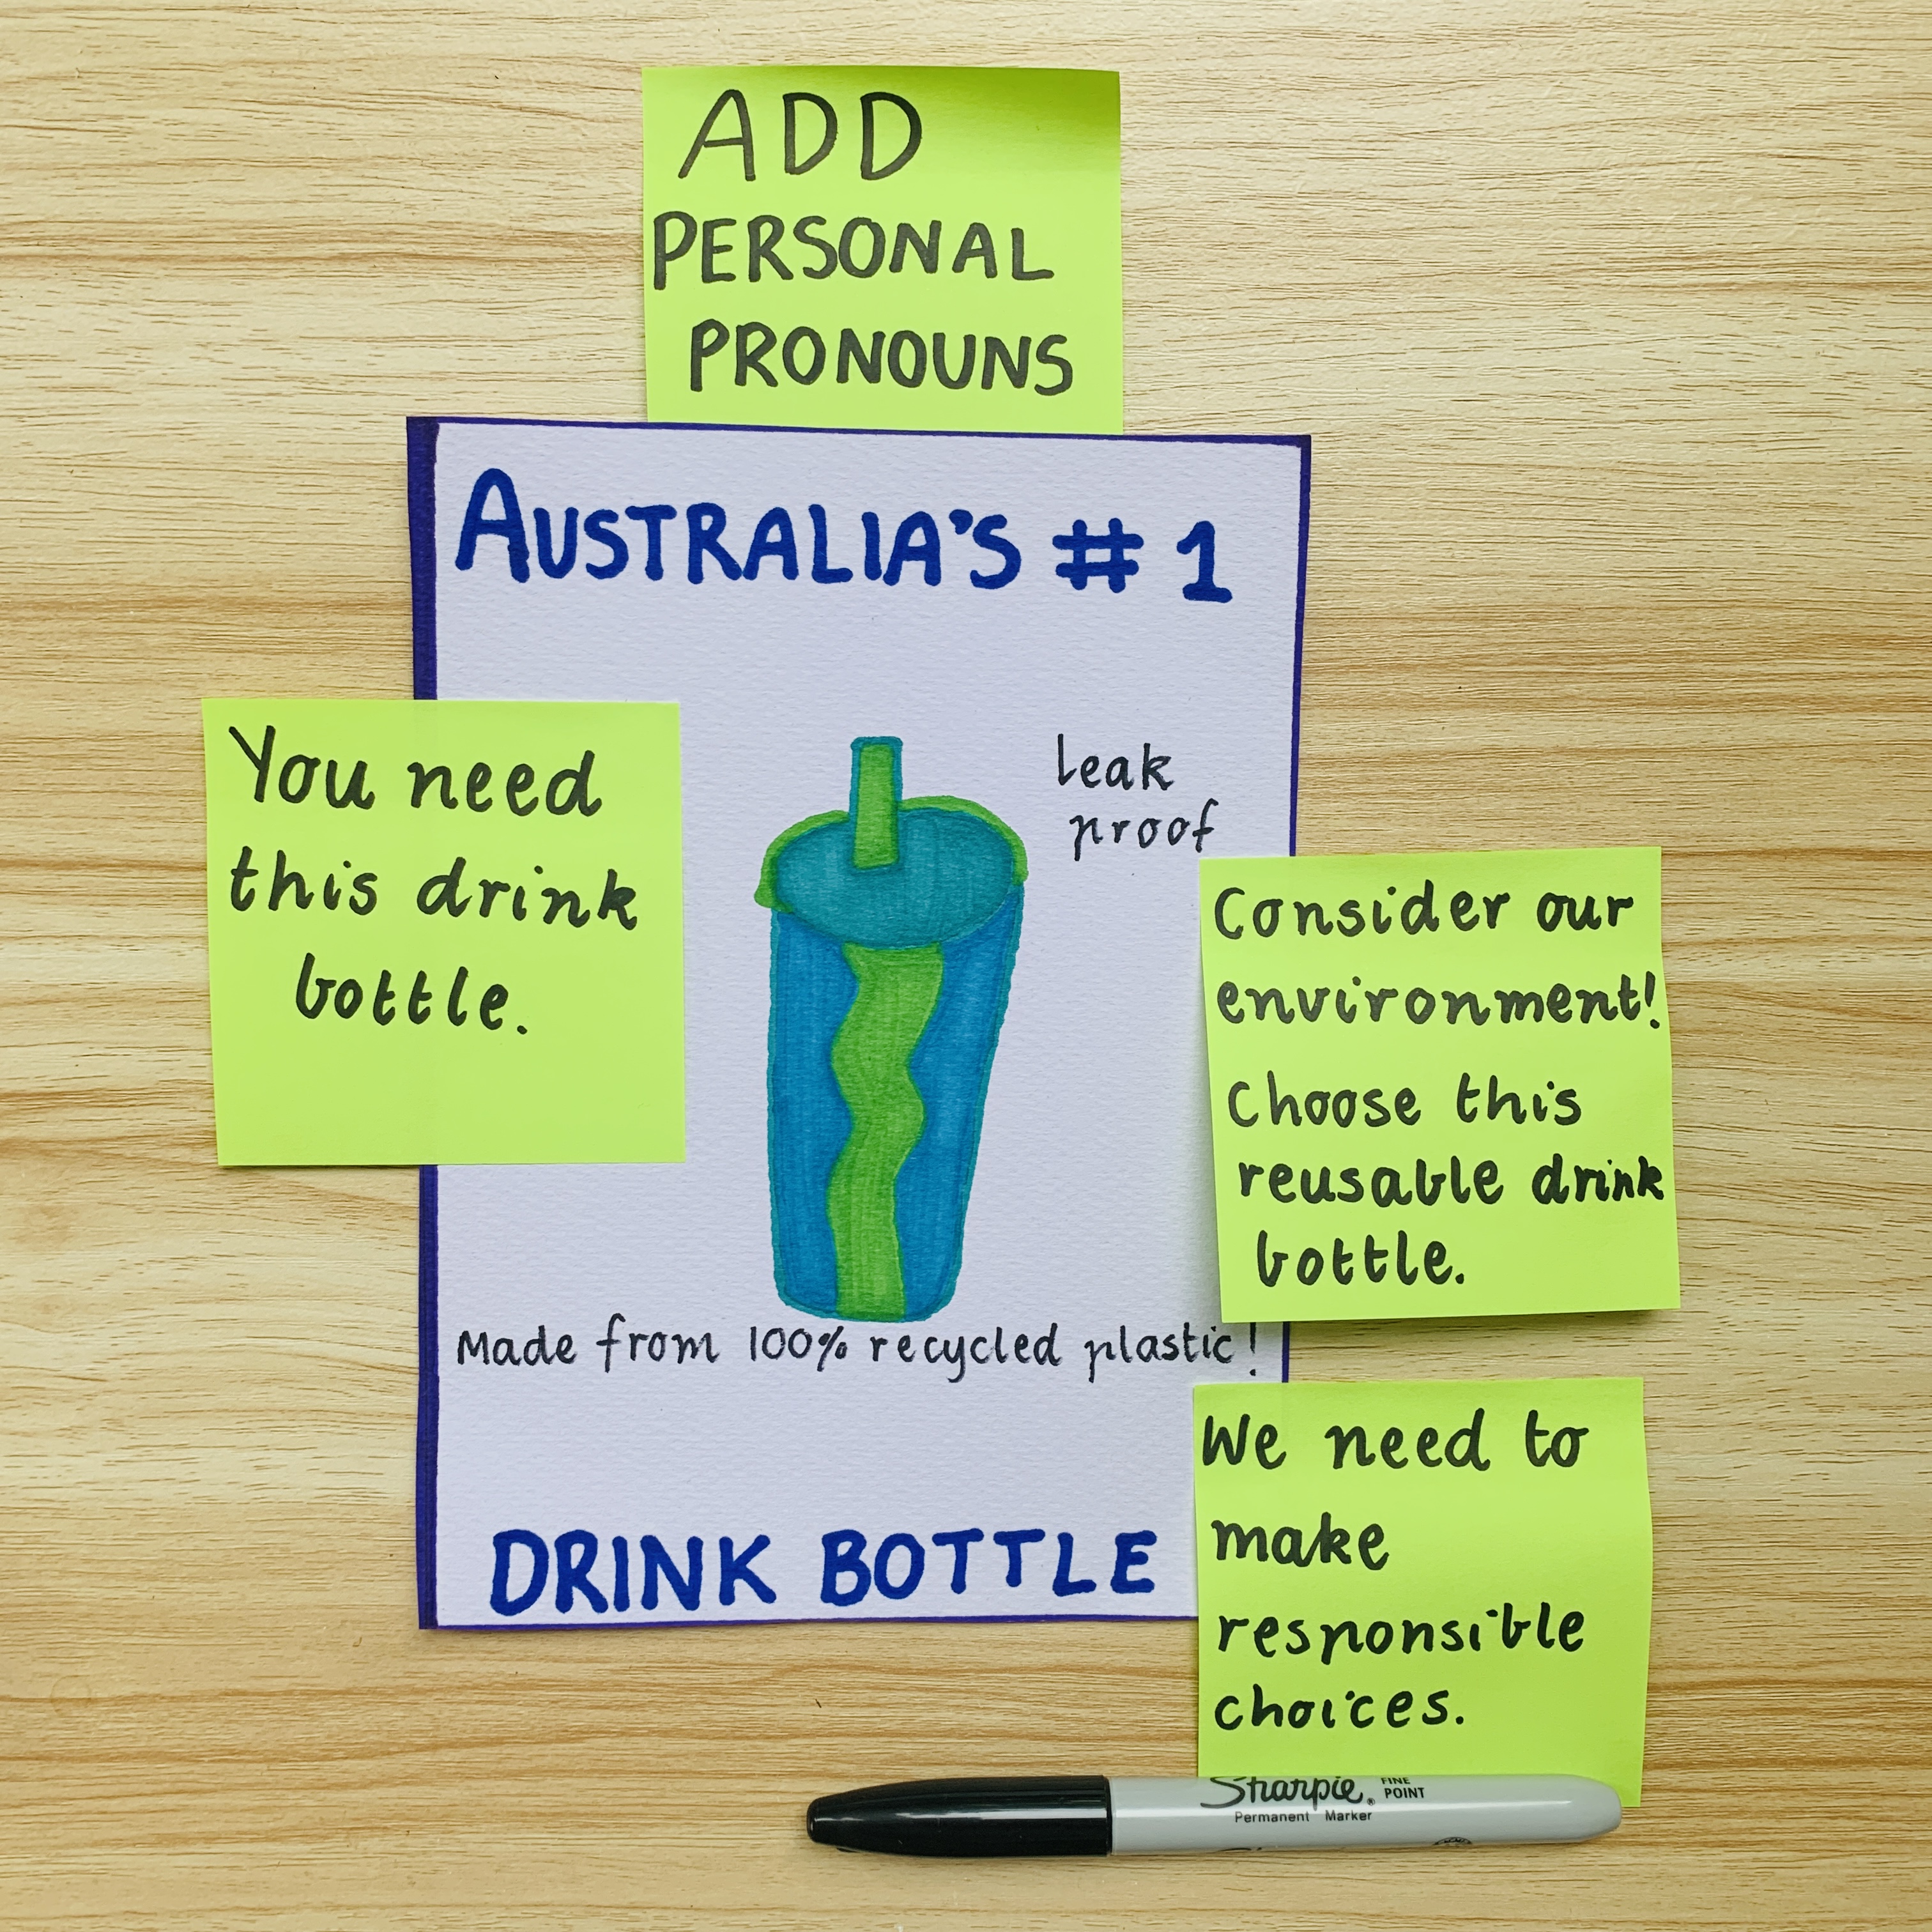 ADD
PERSONAL
PRONOUNS
AUSTRALIA'S #1
You need
this drink
bottle.
leak
proof
Consider our
environment!
Choose this
reusable drink
bottle.
Made from 100% recycled plastic!
We need to
make
responsible
choices.
DRINK BOTTLE
Sharpie® FINE
POINT
Permanent Marker